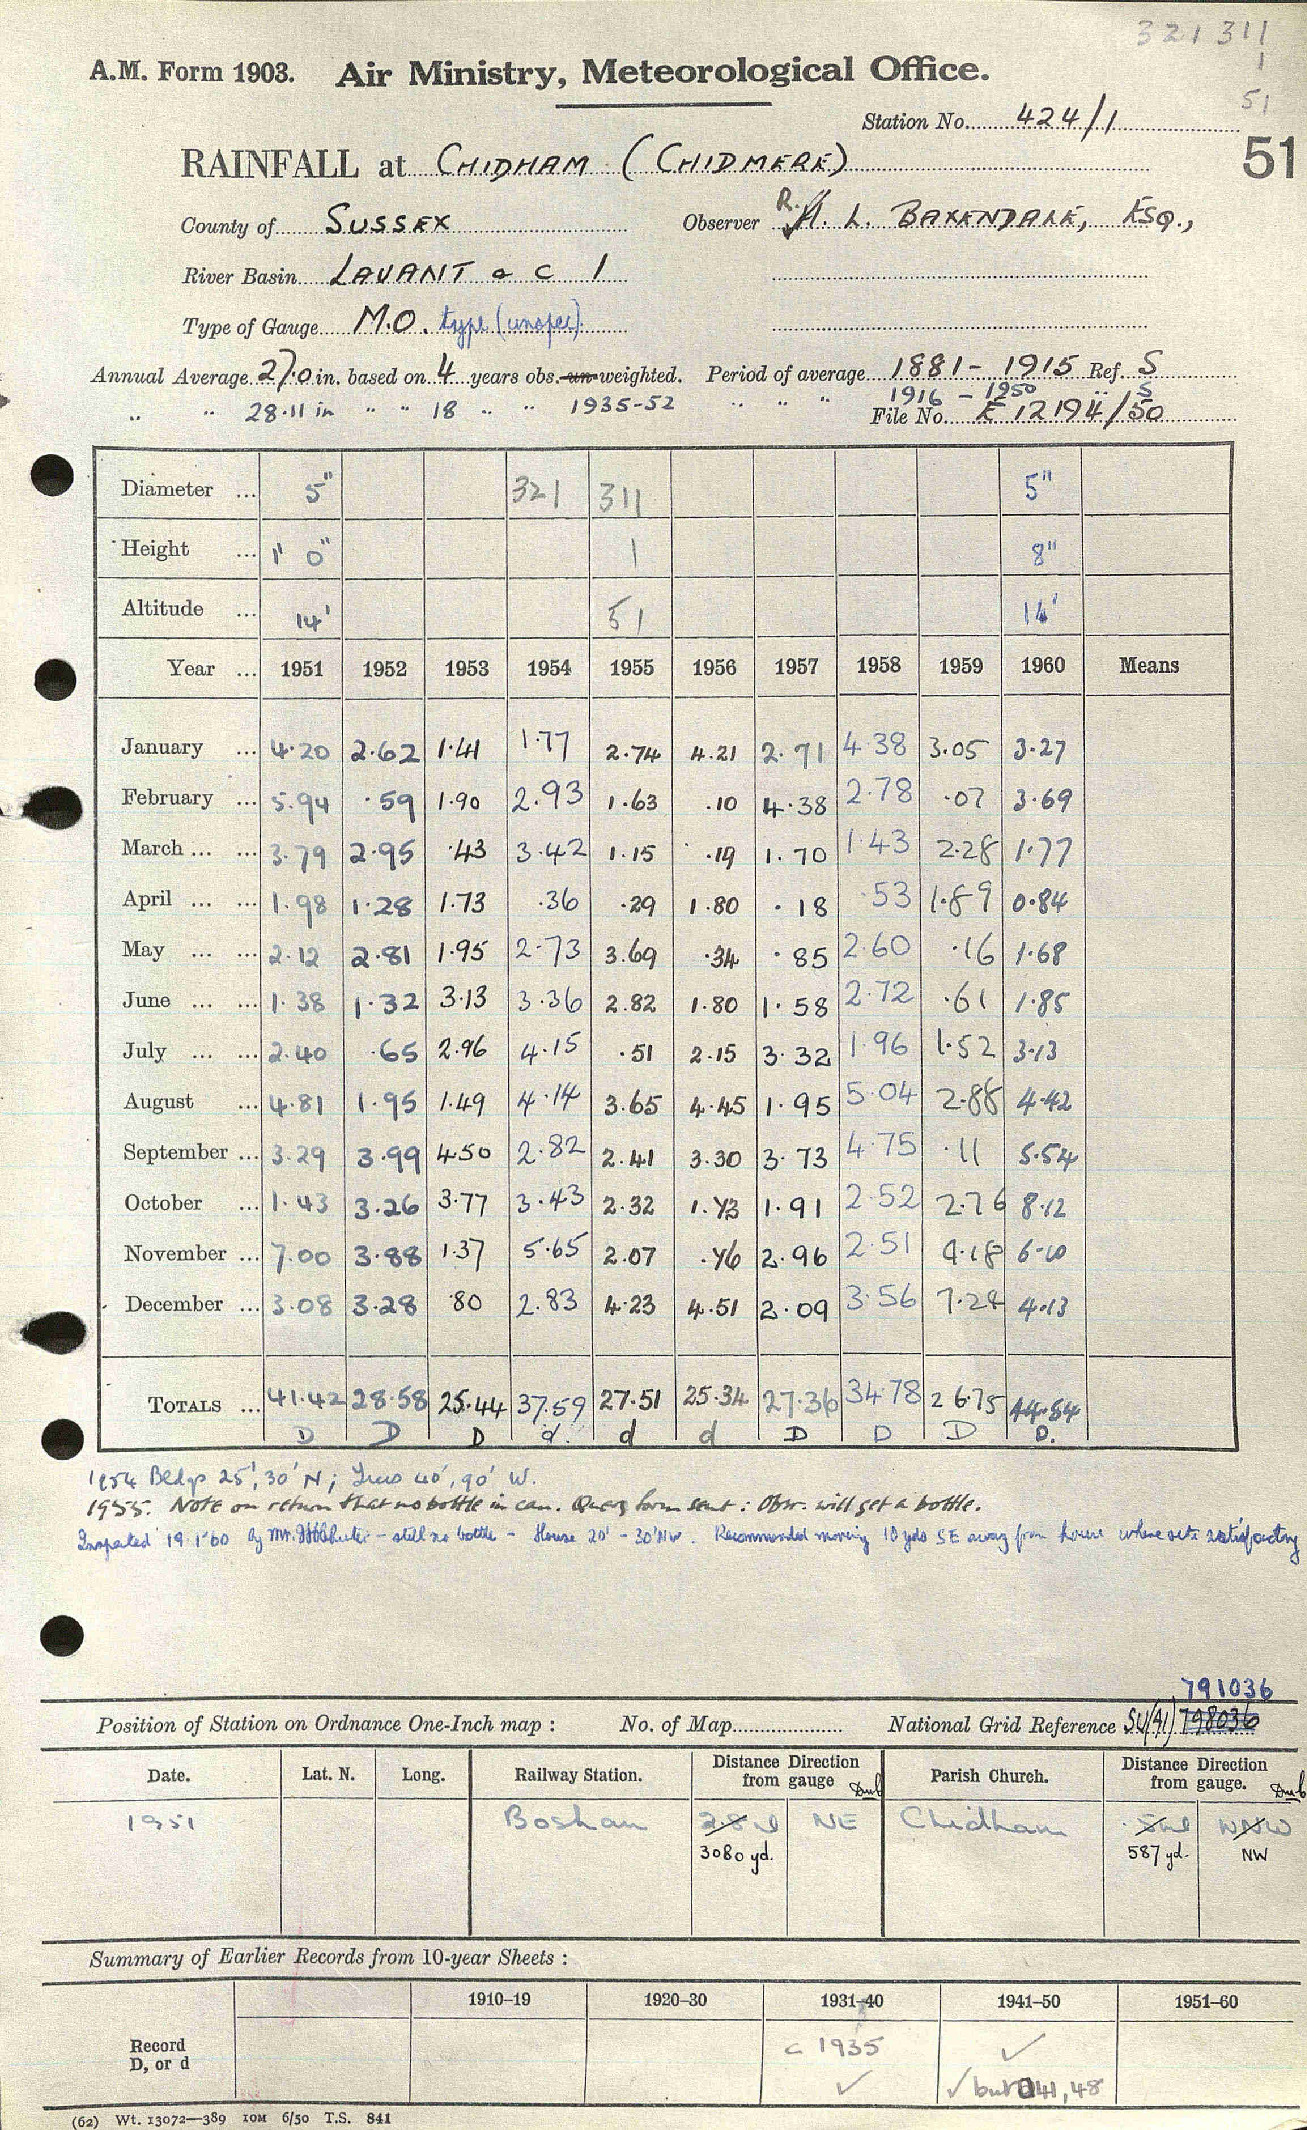 321 311
1
51
A.M. Form 1903. Air Ministry, Meteorological Office.
Station No. 424/1
51
RAINFALL at CHIDHAM (CHIDMERE)
County of SUSSEX Observer R. H. L. BAXENDALE, ESQ.,
River Basin LAVANT & C 1
Type of Gauge M.O. type (unspec).
Annual Average 27.0 in. based on 4 years obs. un-weighted. Period of average 1881-1915 Ref. S
" " 28.11 in " " 18 " " 1935-52 " " " 1916-1950 " S
File No. E 12194/50
Diameter ... 5" 321 311 5"
Height ... 1' 0" 1 8"
Altitude ... 14' 51 14'
Year ... 1951 1952 1953 1954 1955 1956 1957 1958 1959 1960 Means
January ... 4.20 2.62 1.41 1.77 2.74 4.21 2.71 4.38 3.05 3.27
February ... 5.94 .59 1.90 2.93 1.63 .10 4.38 2.78 .07 3.69
March ... ... 3.79 2.95 .43 3.42 1.15 .19 1.70 1.43 2.28 1.77
April ... ... 1.98 1.28 1.73 .36 .29 1.80 .18 .53 1.89 0.84
May ... ... 2.12 2.81 1.95 2.73 3.69 .34 .85 2.60 .16 1.68
June ... ... 1.38 1.32 3.13 3.36 2.82 1.80 1.58 2.72 .61 1.85
July ... ... 2.40 .65 2.96 4.15 .51 2.15 3.32 1.96 1.52 3.13
August ... 4.81 1.95 1.49 4.14 3.65 4.45 1.95 5.04 2.88 4.42
September ... 3.29 3.99 4.50 2.82 2.41 3.30 3.73 4.75 .11 5.54
October ... 1.43 3.26 3.77 3.43 2.32 1.73 1.91 2.52 2.76 8.12
November ... 7.00 3.88 1.37 5.65 2.07 .76 2.96 2.51 4.18 6.10
December ... 3.08 3.28 .80 2.83 4.23 4.51 2.09 3.56 7.24 4.13
TOTALS ... 41.42 28.58 25.44 37.59 27.51 25.34 27.36 34.78 26.75 44.54
D D D d. d d D D D D.
1954 Bldgs 25', 30' N; Trees 40', 90' W.
1955. Note on return that no bottle in can. Query form sent: Obsr. will get a bottle.
Inspected 19.1.60 by Mr. - still no bottle - House 20' - 30' NW. Recommended moving 10 yds SE away from house where site satisfactory
791036
Position of Station on Ordnance One-Inch map : No. of Map National Grid Reference SU(41) 798036
Date. Lat. N. Long. Railway Station. Distance Direction from gauge Dmb Parish Church. Distance Direction from gauge. Dmb
1951 Bosham 2.8 ml NE Chidham .5 ml WNW
3080 yd. 587 yd. NW
Summary of Earlier Records from 10-year Sheets :
1910-19 1920-30 1931-40 1941-50 1951-60
Record
D, or d
c 1935 ✓
✓ ✓ but 41, 48
(62) Wt. 13072-389 10M 6/50 T.S. 841